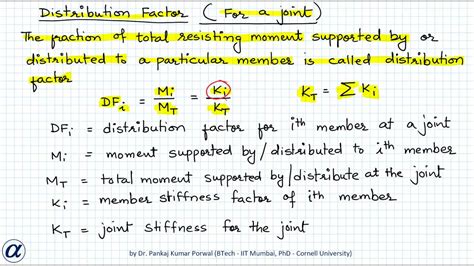 Distribution Factor ( For a joint )
The fraction of total resisting moment supported by or
distributed to a particular member is called distribution
factor
DFi = Mi / MT = Ki / KT    KT = Σ Ki
DFi = distribution factor for ith member at a joint
Mi = moment supported by/distributed to ith member
MT = total moment supported by/distribute at the joint
Ki = member stiffness factor of ith member
KT = joint stiffness for the joint
α by Dr. Pankaj Kumar Porwal (BTech - IIT Mumbai, PhD - Cornell University)